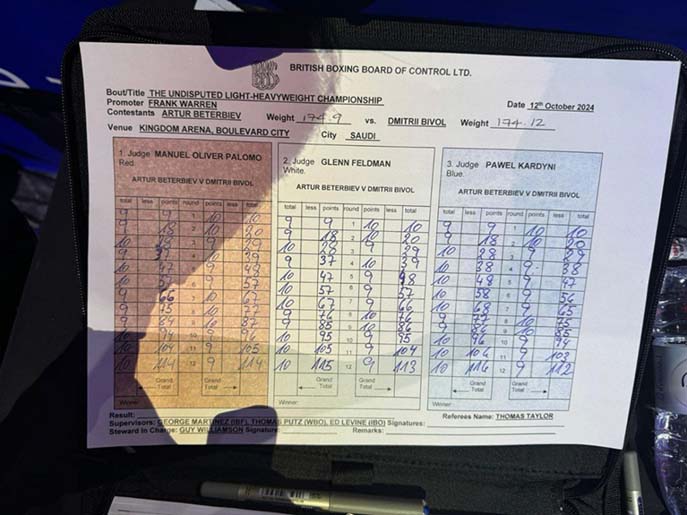 BRITISH BOXING BOARD OF CONTROL LTD.
Bout/Title THE UNDISPUTED LIGHT-HEAVYWEIGHT CHAMPIONSHIP
Promoter FRANK WARREN Date 12th October 2024
Contestants ARTUR BETERBIEV Weight 174.9 vs. DMITRII BIVOL Weight 174.12
Venue KINGDOM ARENA, BOULEVARD CITY City SAUDI
1. Judge MANUEL OLIVER PALOMO 2. Judge GLENN FELDMAN 3. Judge PAWEL KARDYNI
Red. White. Blue.
ARTUR BETERBIEV V DMITRII BIVOL ARTUR BETERBIEV V DMITRII BIVOL ARTUR BETERBIEV V DMITRII BIVOL
total less points round points less total total less points round points less total total less points round points less total
9 9 1 10 10 9 9 1 10 10 9 9 1 10 10
9 18 2 10 20 9 18 2 10 20 9 18 2 10 20
10 28 3 9 29 10 28 3 9 29 10 28 3 9 29
9 37 4 10 39 9 37 4 10 39 10 38 4 9 38
10 47 5 9 48 10 47 5 9 48 10 48 5 9 47
10 57 6 9 57 10 57 6 9 57 10 58 6 9 56
9 66 7 10 67 10 67 7 9 66 10 68 7 9 65
9 75 8 10 77 9 76 8 10 76 9 77 8 10 75
9 84 9 10 87 9 85 9 10 86 9 86 9 10 85
10 94 10 9 96 10 95 10 9 95 10 96 10 9 94
10 104 11 9 105 10 105 11 9 104 10 106 11 9 103
10 114 12 9 114 10 115 12 9 113 10 116 12 9 112
Grand Grand Grand Grand Grand Grand
Total Total Total Total Total Total
Winner: Winner: Winner:
Result: Referees Name: THOMAS TAYLOR
Supervisors: GEORGE MARTINEZ (IBF), THOMAS PUTZ (WBO), ED LEVINE (IBO) Signatures:
Steward In Charge: GUY WILLIAMSON Signature: Remarks: